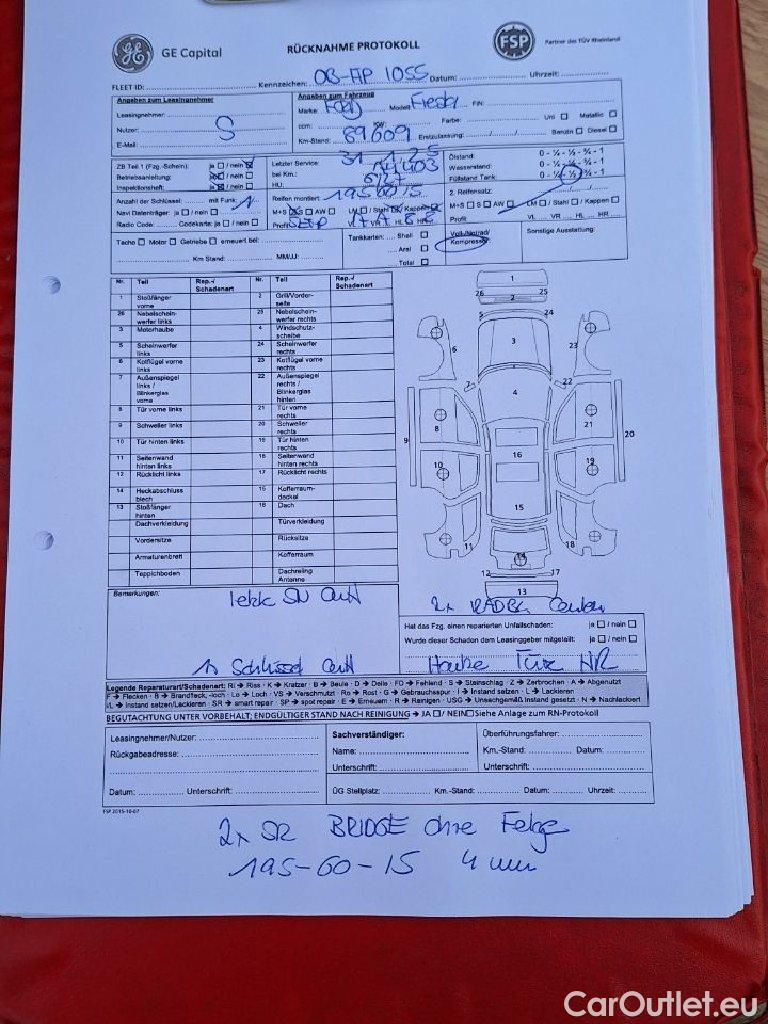 GE Capital
RÜCKNAHME PROTOKOLL
FSP
Partner des TÜV Rheinland
FLEET ID: Kennzeichen: OB-AP 1055 Datum: Uhrzeit:
Angaben zum Leasingnehmer
Leasingnehmer:
Nutzer: S
E-Mail:
Angaben zum Fahrzeug
Marke: Ford Modell: Fiesta FIN:
ccm: KW: Farbe: Uni Metallic
Km-Stand: 89609 Erstzulassung: Benzin Diesel
ZB Teil 1 (Fzg.-Schein): ja / nein
Betriebsanleitung: ja / nein
Inspektionsheft: ja / nein
Anzahl der Schlüssel: mit Funk: 1
Navi Datenträger: ja / nein
Radio Code: Codekarte: ja / nein
Letzter Service:
bei Km.:
HU:
Reifen montiert: 195 60 15
M+S S AW LM / Stahl / Kappen
Profil VR HL HR
Ölstand: 0 - ¼ - ½ - ¾ - 1
Wasserstand: 0 - ¼ - ½ - ¾ - 1
Füllstand Tank: 0 - ¼ - ½ - ¾ - 1
2. Reifensatz:
M+S S AW LM / Stahl / Kappen
Profil VL VR HL HR
Tacho Motor Getriebe erneuert bei:
Km Stand: MM/JJ:
Tankkarten: Shell
Aral
Total
Voll-/Notrad/
Kompressor
Sonstige Ausstattung:
Nr. Teil Rep.-/ Schadenart Nr. Teil Rep.-/ Schadenart
1 Stoßfänger vorne 2 Grill/Vorder-seite
26 Nebelschein-werfer links 25 Nebelschein-werfer rechts
3 Motorhaube 4 Windschutz-scheibe
5 Scheinwerfer links 24 Scheinwerfer rechts
6 Kotflügel vorne links 23 Kotflügel vorne rechts
7 Außenspiegel links / Blinkerglas vorne 22 Außenspiegel rechts / Blinkerglas hinten
8 Tür vorne links 21 Tür vorne rechts
9 Schweller links 20 Schweller rechts
10 Tür hinten links 19 Tür hinten rechts
11 Seitenwand hinten links 18 Seitenwand hinten rechts
12 Rücklicht links 17 Rücklicht rechts
14 Heckabschluss blech 15 Kofferraum-deckel
13 Stoßfänger hinten 16 Dach
Dachverkleidung Türverkleidung
Vordersitze Rücksitze
Armaturenbrett Kofferraum
Teppichboden Dachreling/ Antenne
1
26 25
2
5 24
3
6 23
7 22
4
8 21
9 20
16
10 19
15
11 18
14
12 17
13
Bemerkungen:
Hat das Fzg. einen reparierten Unfallschaden: ja / nein
Wurde dieser Schaden dem Leasinggeber mitgeteilt: ja / nein
Haube Türe HR
Legende Reparaturart/Schadenart: RI → Riss · K → Kratzer · B → Beule · D → Delle · FD → Fehlend · S → Steinschlag · Z → Zerbrochen · A → Abgenutzt
F → Flecken · B → Brandfleck, -loch · Lo → Loch · VS → Verschmutzt · Ro → Rost · G → Gebrauchsspur · I → Instand setzen · L → Lackieren
I/L → Instand setzen/Lackieren · SR → smart repair · SP → spot repair · E → Erneuern · R → Reinigen · USG → Unsachgemäß instand gesetzt · N → Nachlackiert
BEGUTACHTUNG UNTER VORBEHALT; ENDGÜLTIGER STAND NACH REINIGUNG → JA / NEIN Siehe Anlage zum RN-Protokoll
Leasingnehmer/Nutzer:
Rückgabeadresse:
Datum: Unterschrift:
Sachverständiger:
Name:
Unterschrift:
Überführungsfahrer:
Km.-Stand: Datum:
Unterschrift:
ÜG Stellplatz: Km.-Stand: Datum: Uhrzeit:
2x SR BRIDGE ohne Felge
195-60-15 4 mm
CarOutlet.eu